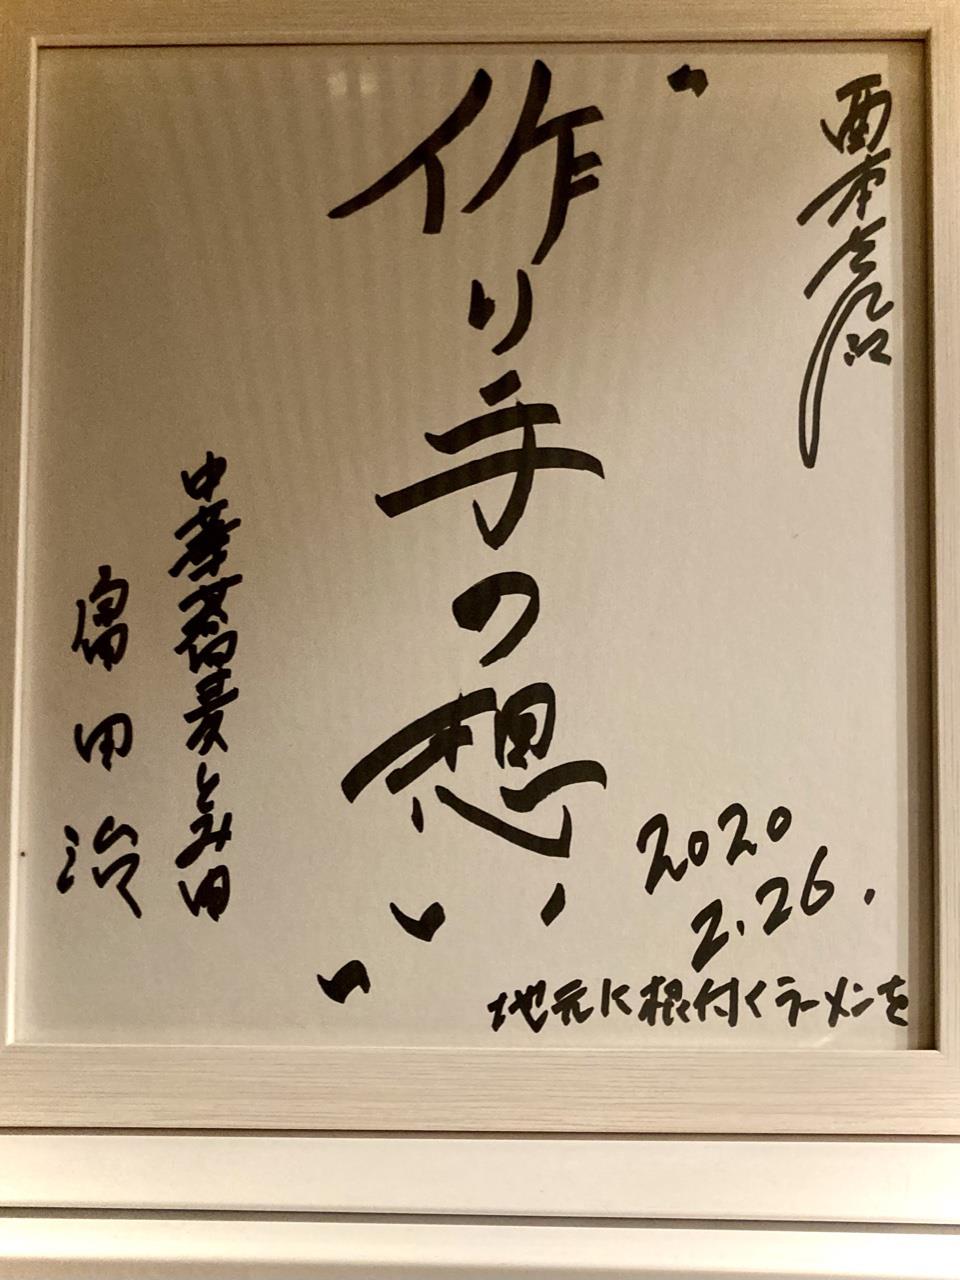 西本
"作り手の想い"
中華蕎麦とみ田
富田 治
2020
2.26.
地元に根付くラーメンを